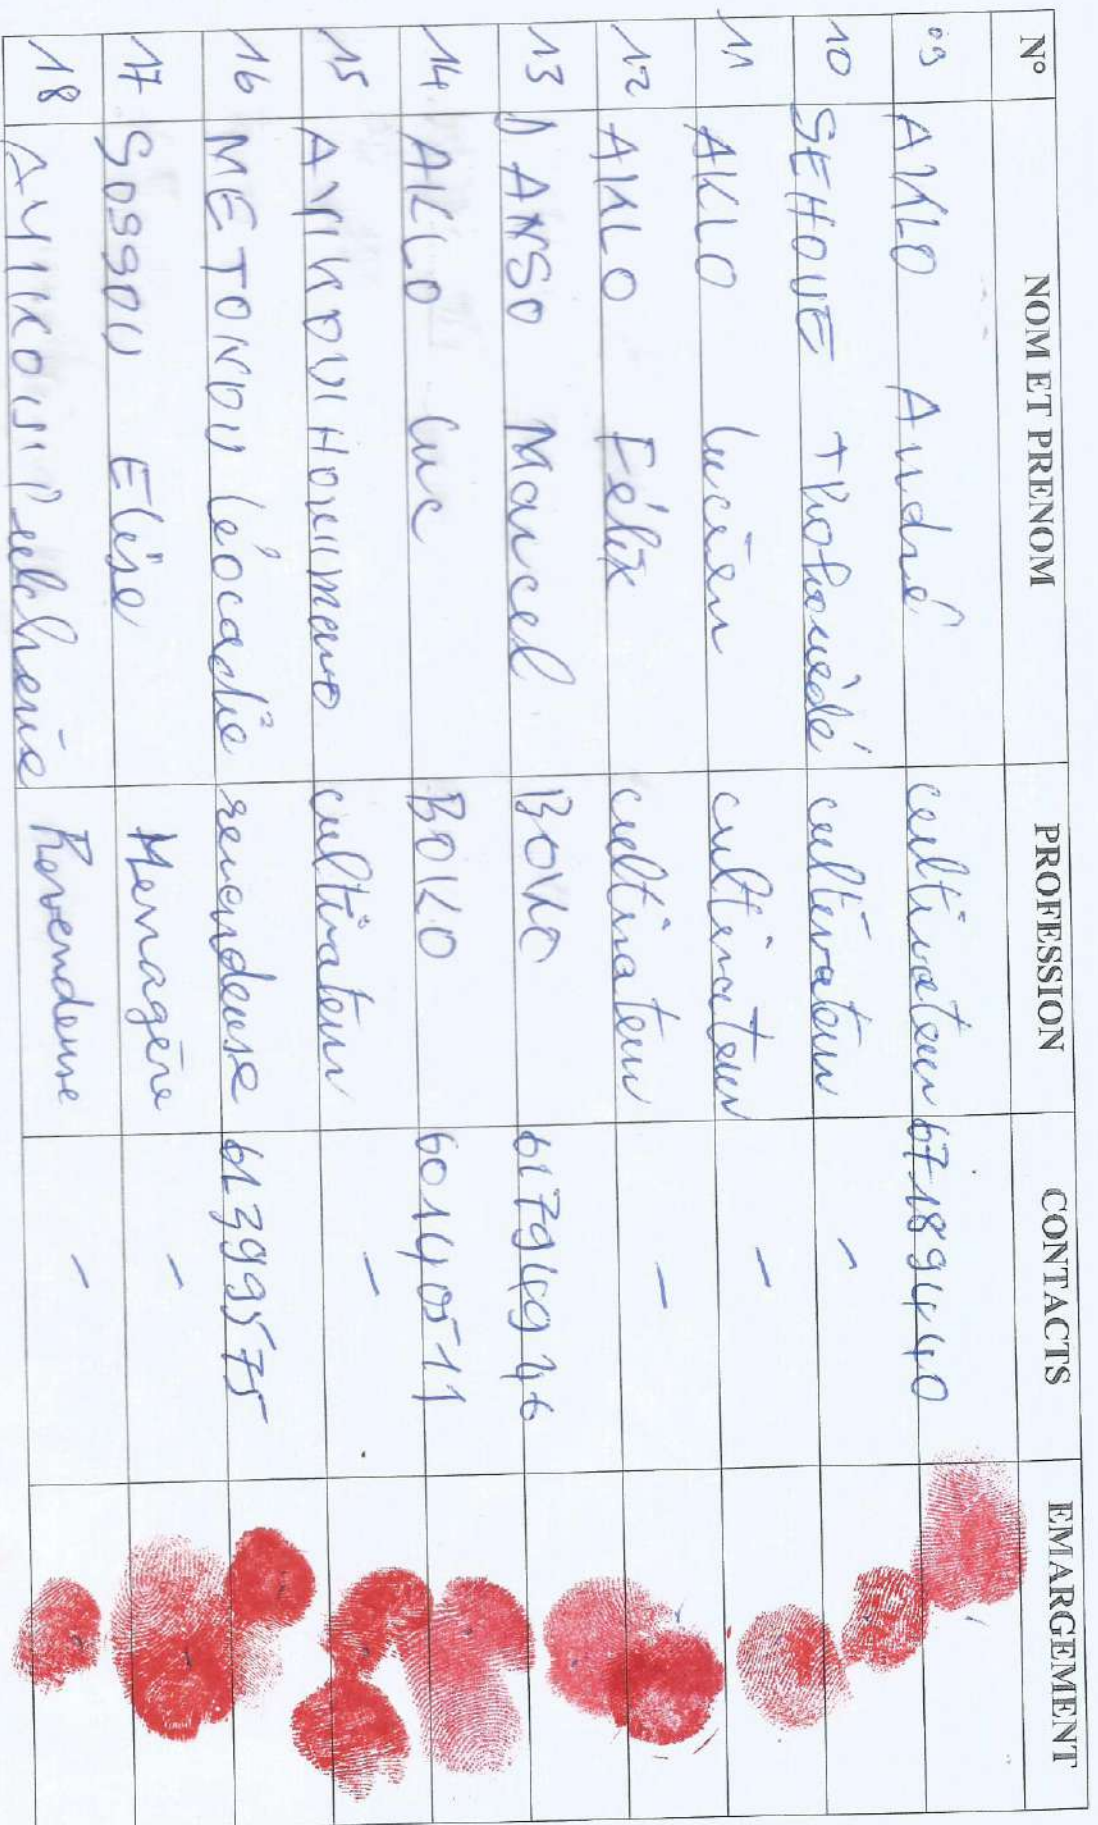 N° NOM ET PRENOM PROFESSION CONTACTS EMARGEMENT
09 AKLO André cultivateur 67189440
10 SEHOUE cultivateur -
11 AKLO Lucien cultivateur -
12 AKLO Félix cultivateur -
13 DANSO Marcel BOKO 61794946
14 AKLO Luc BOKO 60140511
15 cultivateur -
16 METONOU Léocadie revendeuse 61399575
17 SOSSOU Elise Menagère -
18 AYIKOUI Pulcherie Revendeuse -